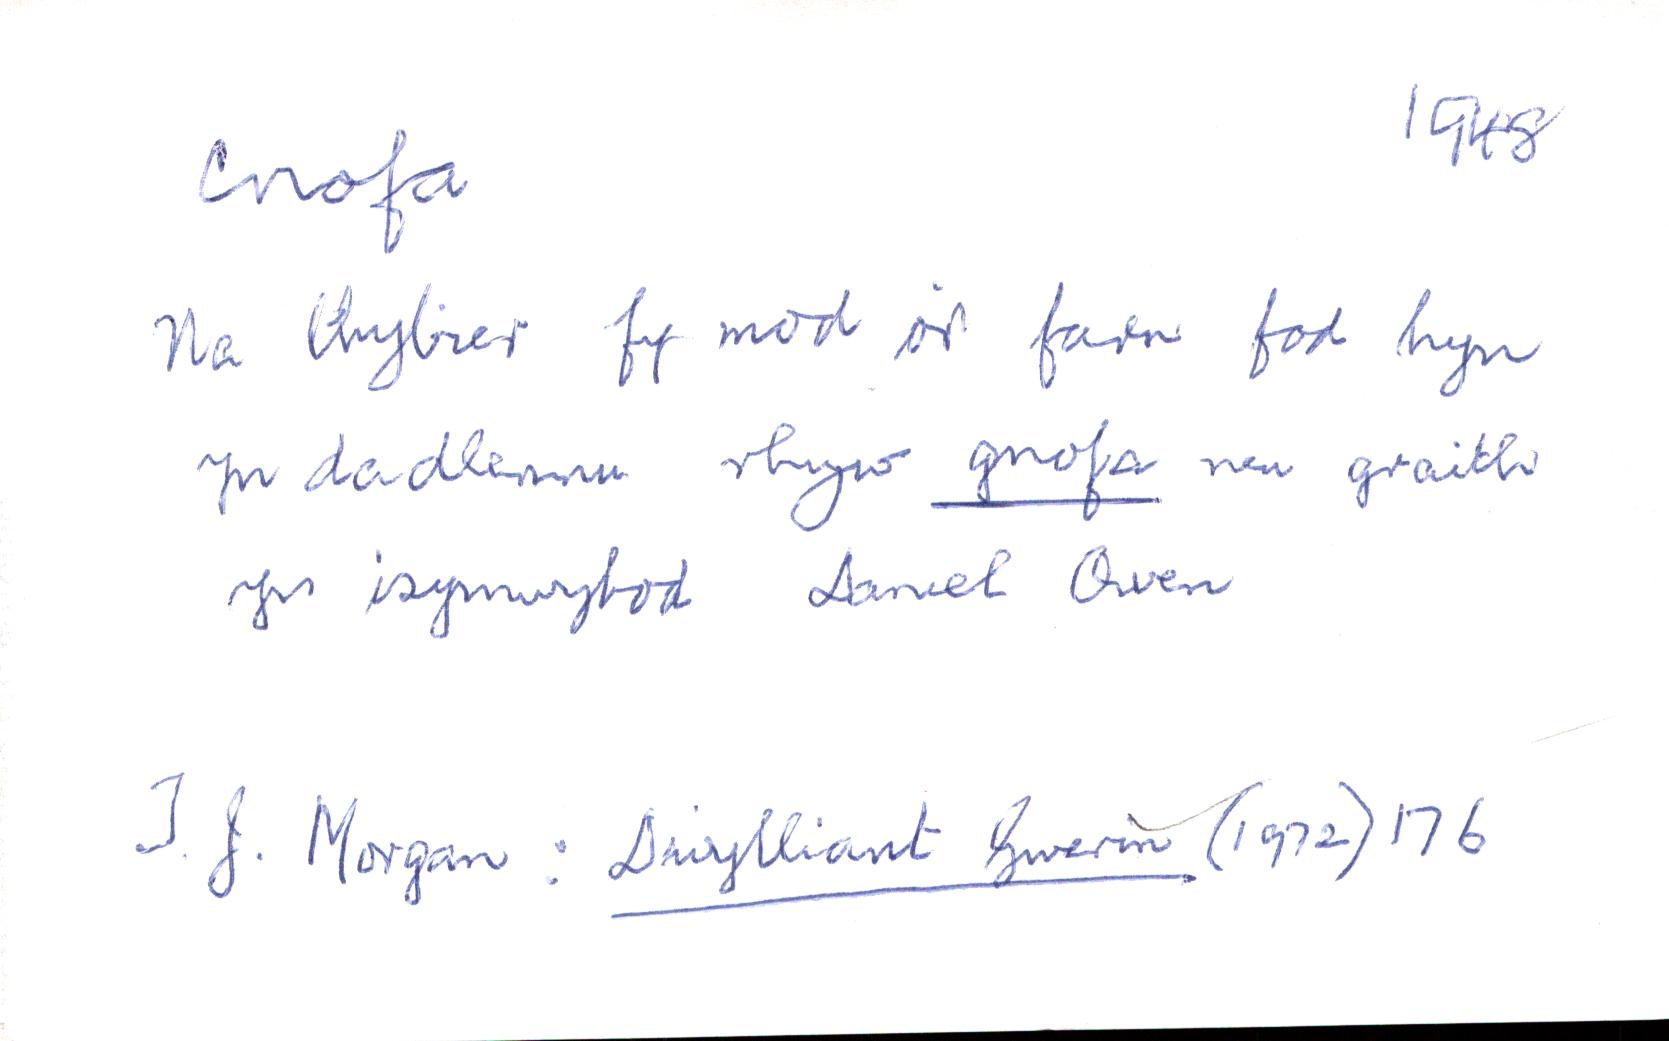 1948
Cnofa
Na thybier fy mod o'r farn fod hyn
yn dadlennu rhyw gnofa neu graith
yn isymwybod Daniel Owen
T. J. Morgan : Diwylliant Gwerin (1972) 176